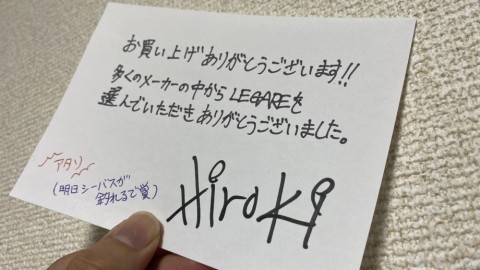 お買い上げありがとうございます!!
多くのメーカーの中からLEGAREを
選んでいただきありがとうございました。
アタリ
(明日シーバスが
釣れるで賞)
HiroKi